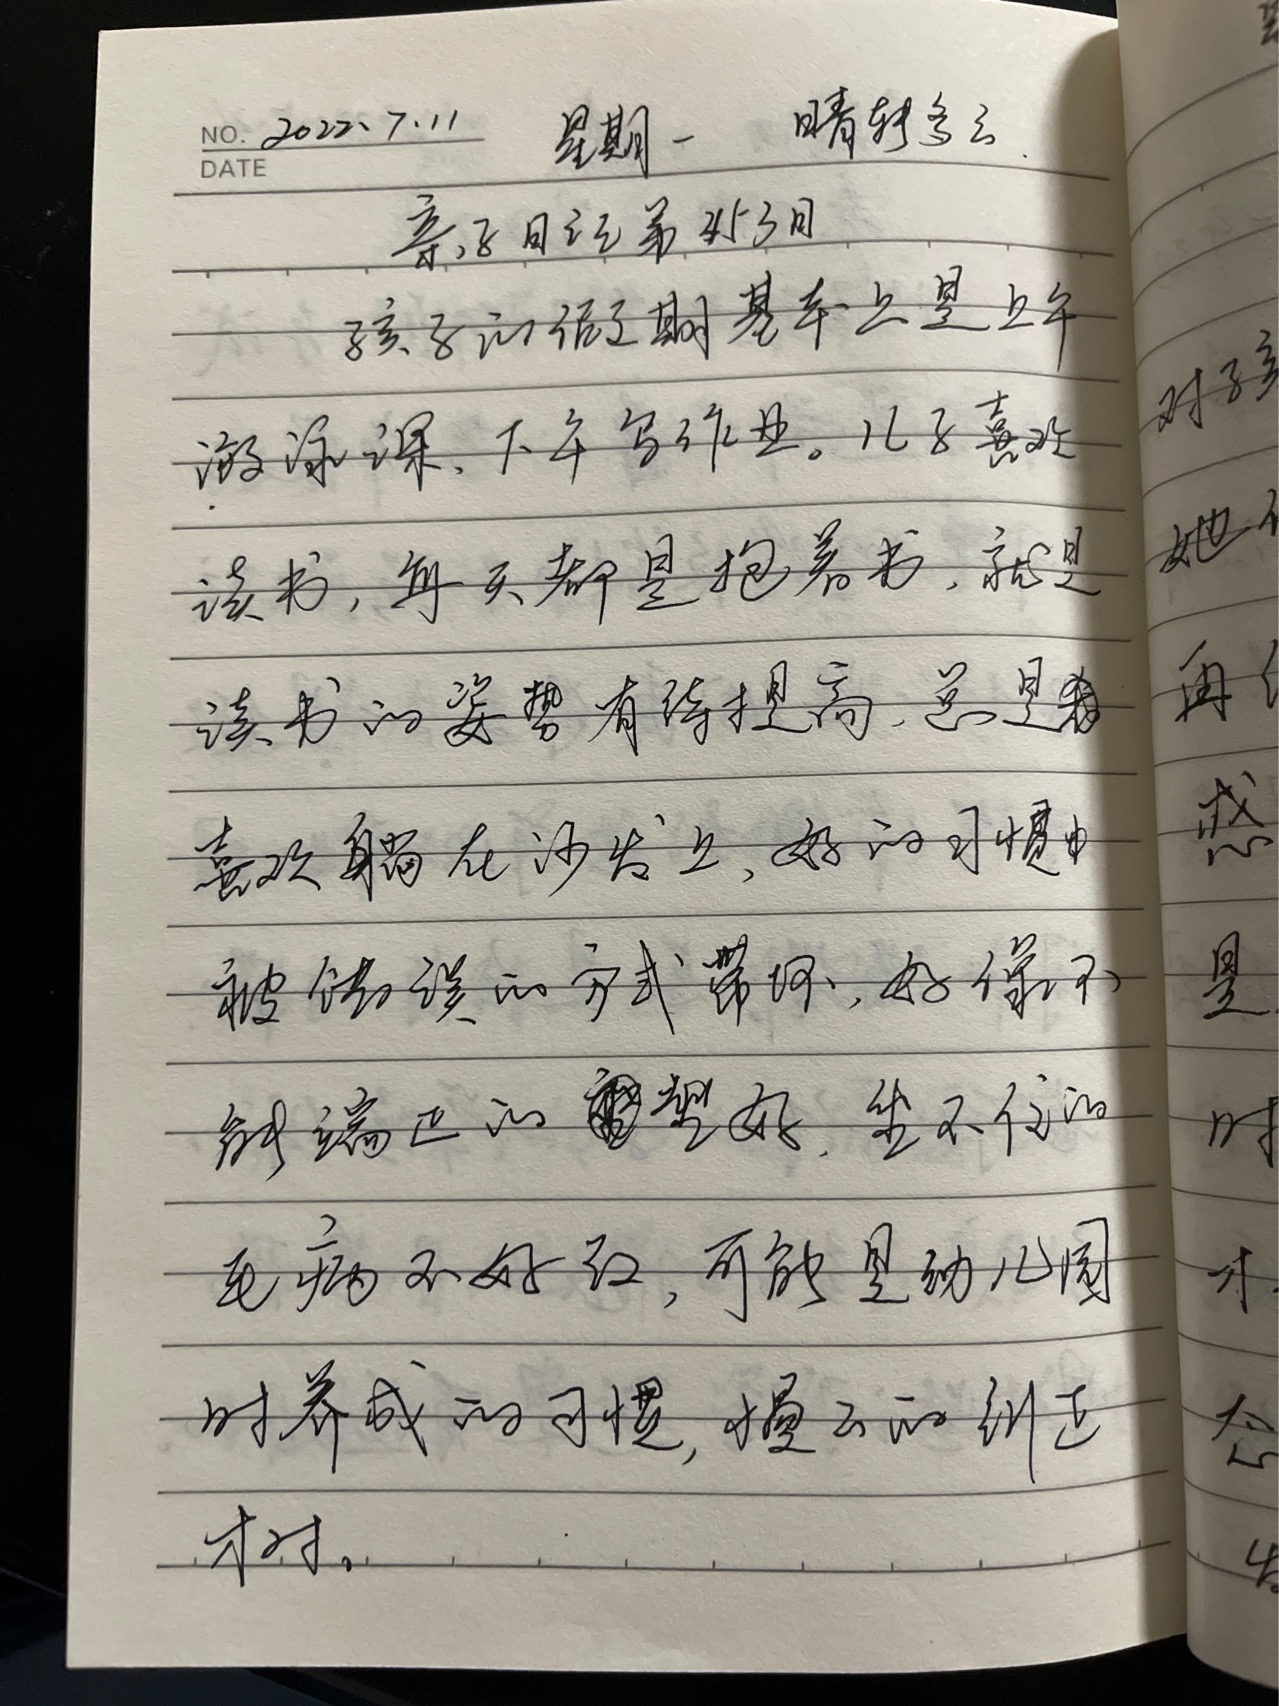 NO. 2022.7.11 星期一 晴转多云.
DATE
亲子日记第353日
孩子的假期基本上是上午
游泳课、下午写作业。儿子喜欢
读书，每天都是抱着书，就是
读书的姿势有待提高，总是
喜欢躺在沙发上，好的习惯也
被错误的方式带坏，好像不
能端正的坐好，坐不住的
毛病不好改，可能是幼儿园
时养成的习惯，慢慢的纠正
才对。
对孩
她
再
惑
是
时
才
态